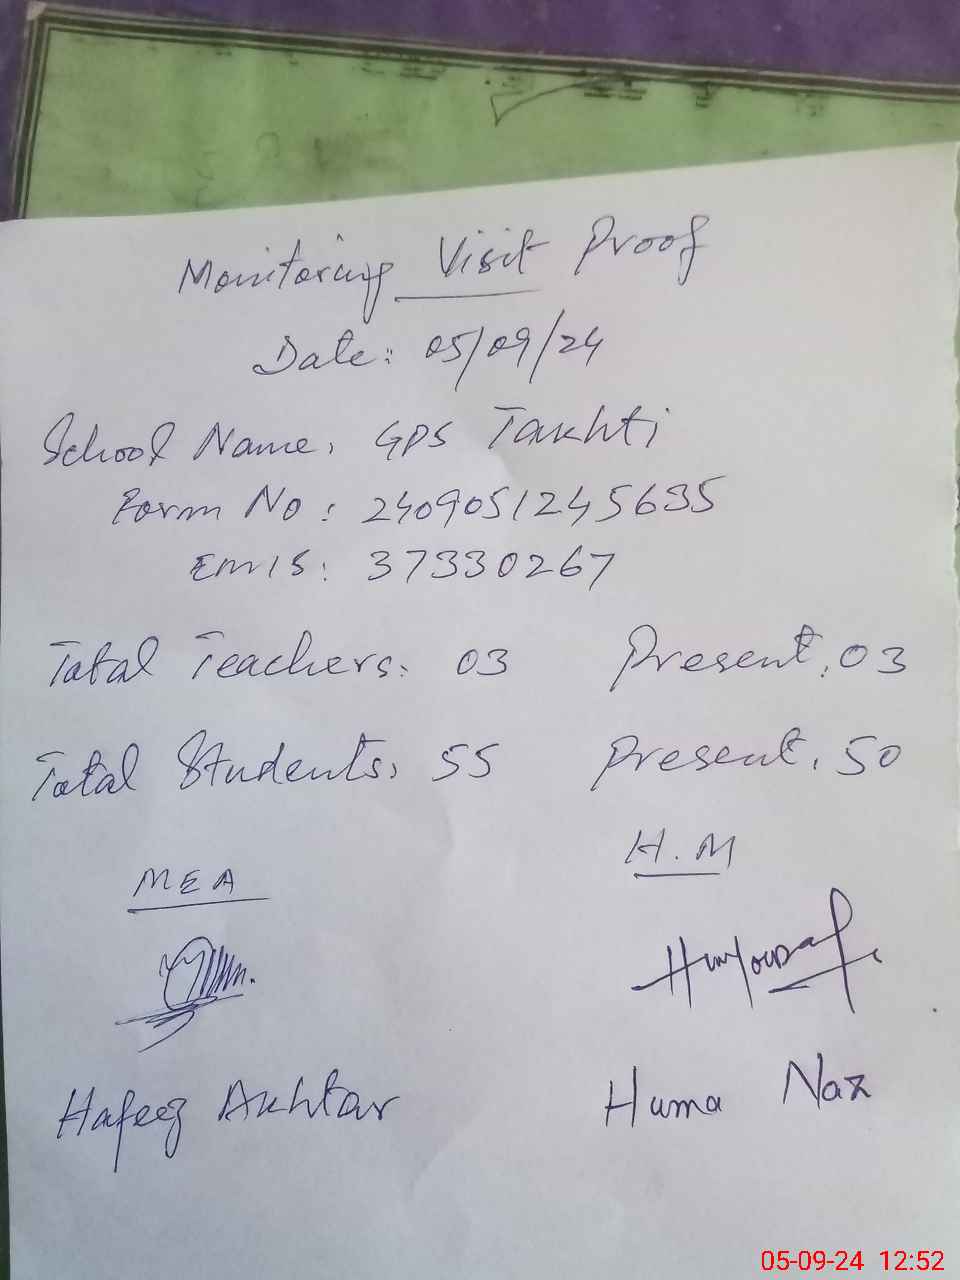 Monitoring Visit Proof
Date: 05/09/24
School Name: GPS Takhti
Form No: 2409051245635
EMIS: 37330267
Total Teachers: 03 Present: 03
Total Students: 55 Present: 50
H.M
MEA
Hafeez Akhtar Huma Naz
05-09-24 12:52